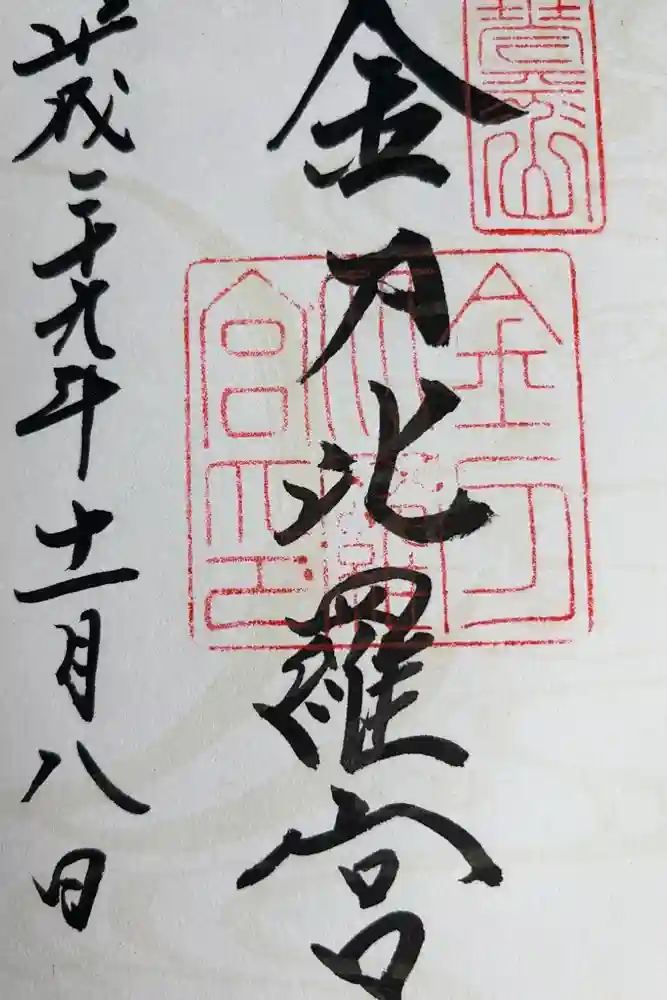 金刀比羅宮
金刀比羅宮印
平成二十九年十一月八日